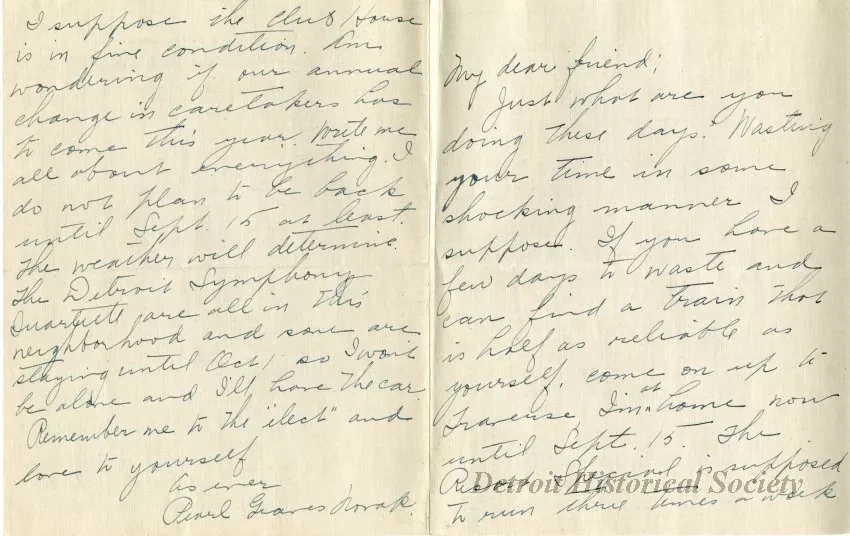 My dear friend;
Just what are you
doing these days? Wasting
your time in some
shocking manner I
suppose. If you have a
few days to waste and
can find a train that
is half as reliable as
yourself, come on up to
Traverse. I'm at home now
until Sept. 15. The
Resort Special is supposed
to run three times a week
I suppose the Club House
is in fine condition. Am
wondering if our annual
change in caretakers has
to come this year. Write me
all about everything. I
do not plan to be back
until Sept. 15 at least.
The weather will determine.
The Detroit Symphony
Quartette are all in this
neighborhood and some are
staying until Oct 1 so I won't
be alone and I'll have the car.
Remember me to the "elect" and
love to yourself
As ever
Pearl Graves Novak.
Detroit Historical Society